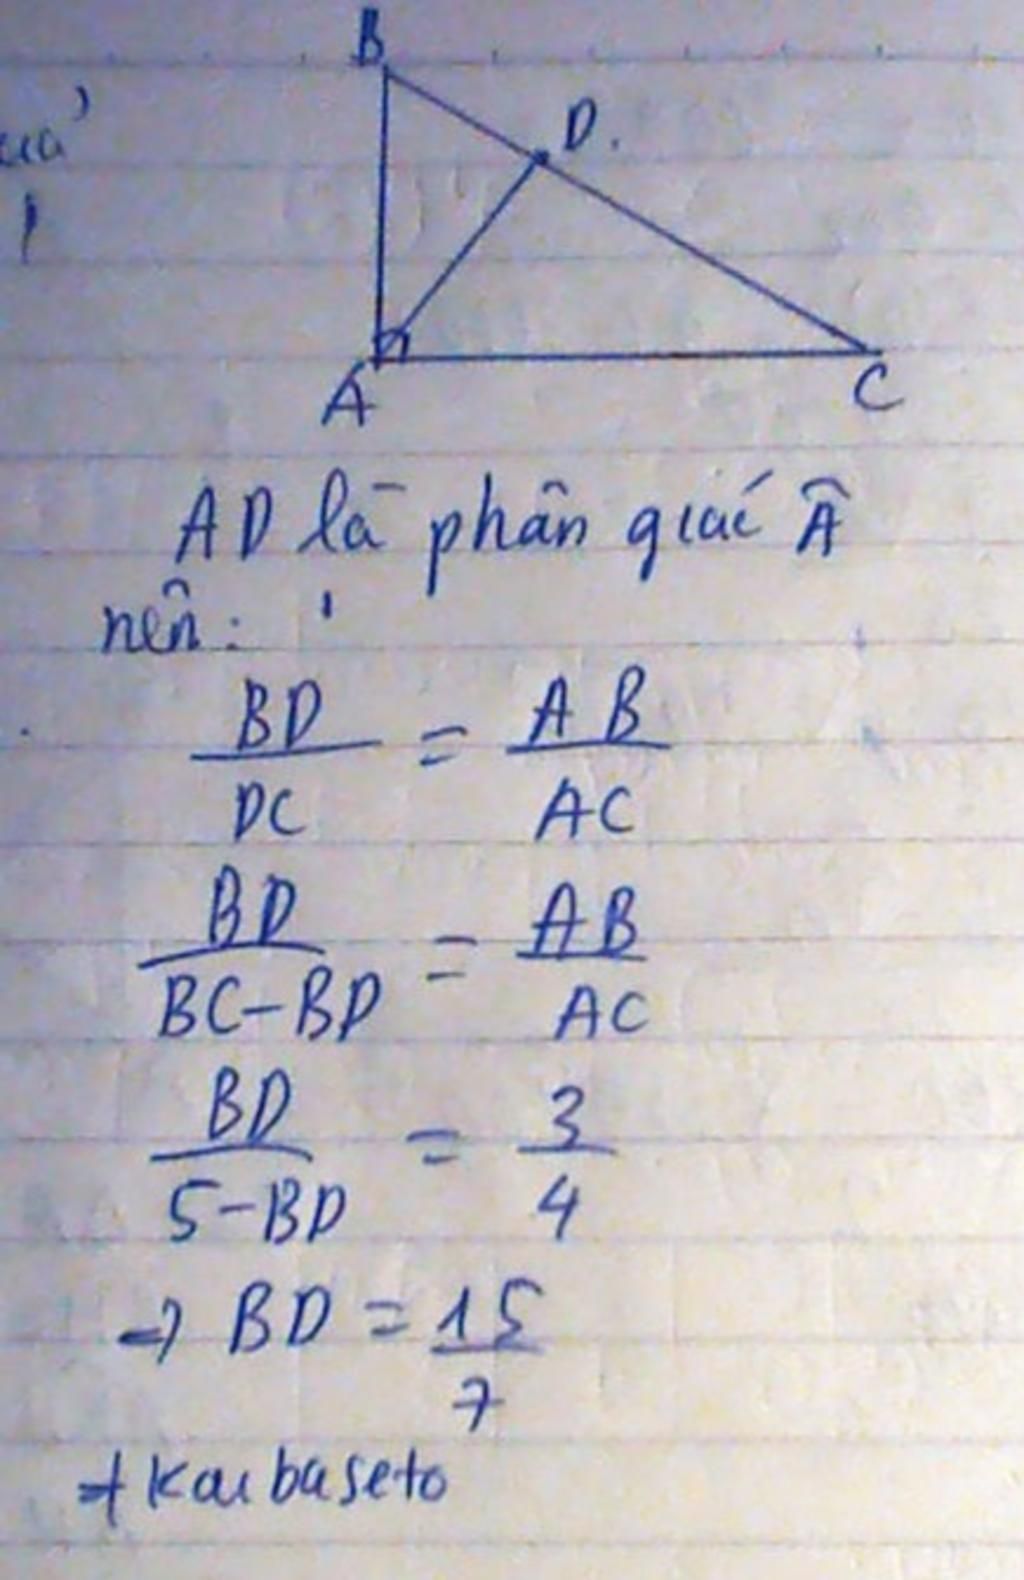 B
D.
A
C
AD là phân giác Â
nên:
BD/DC = AB/AC
BD/BC-BD = AB/AC
BD/5-BD = 3/4
=> BD = 15/7
Kaibaseto